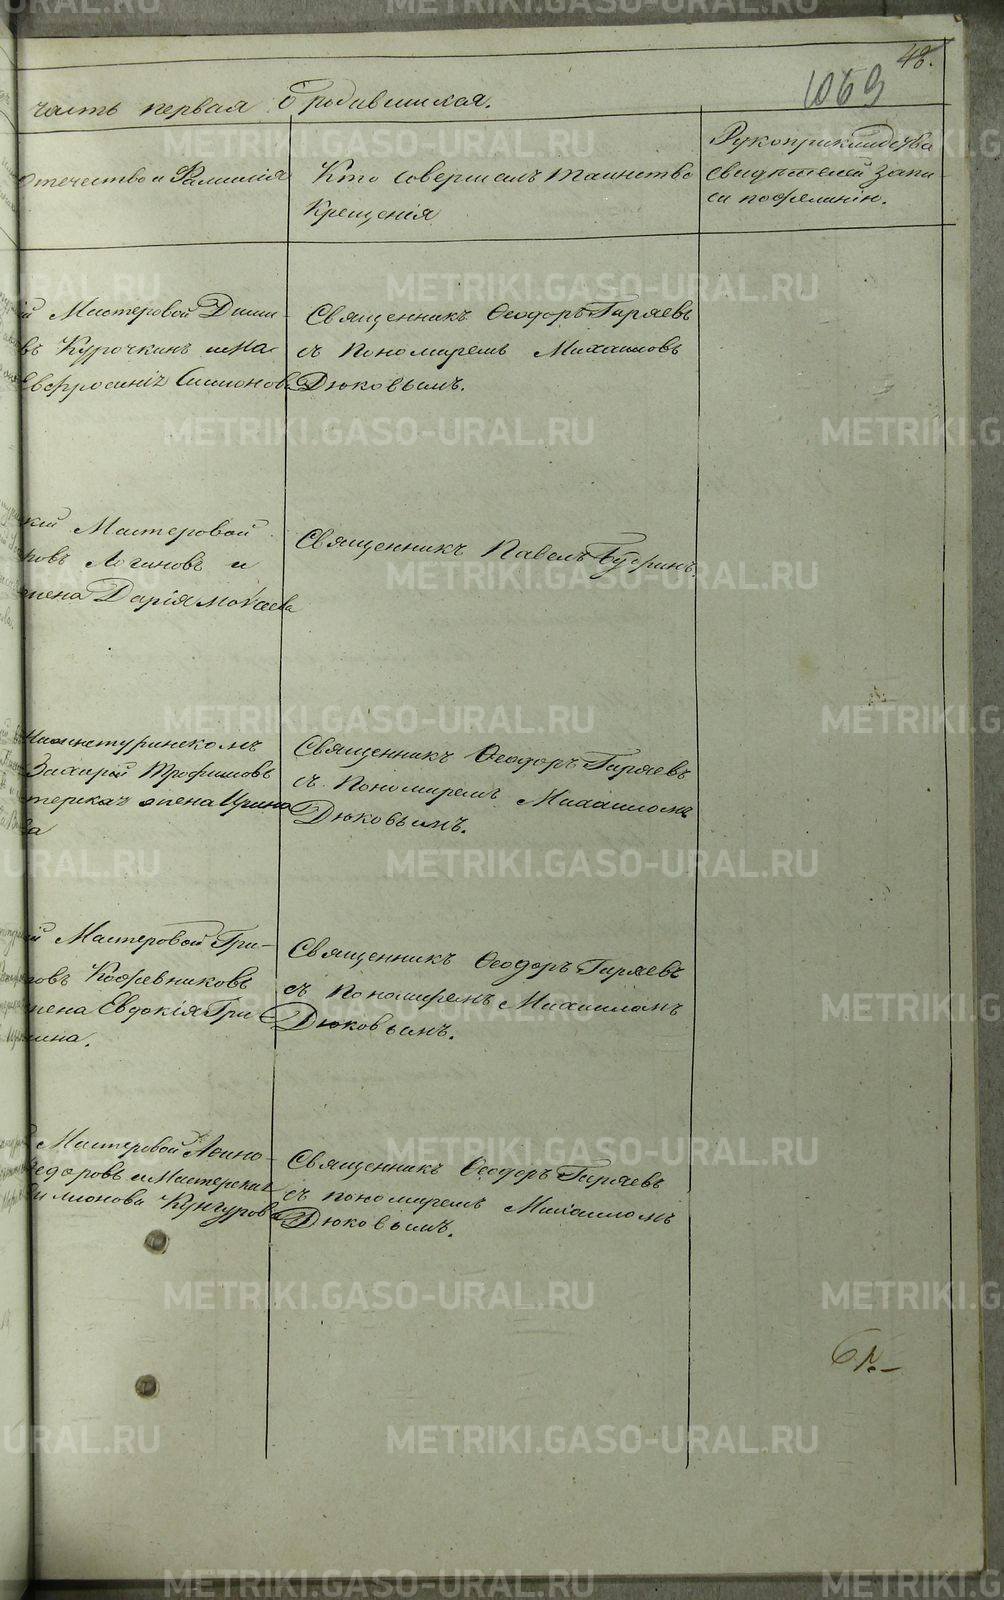 48.
1069
часть первая о родившихся.
Отчество и Фамилія
Кто совершалъ таинство
Крещенія
Рукоприкладства
свидѣтелей запи-
си по желанію.
й Мастеровой Дими-
въ Курочкинъ и жена
Евфросинія Симонова
Священникъ Ѳеодоръ Гиряевъ
съ Пономаремъ Михаиломъ
Дюковымъ.
кій Мастеровой
новъ Логиновъ и
жена Дарія Мокаева
Священникъ Павелъ Бубринъ.
Нижнетуринскомъ
Захарій Трофимовъ
жена Ирина
ва
Священникъ Ѳеодоръ Гиряевъ
съ Пономаремъ Михаиломъ
Дюковымъ.
й Мастеровой Гри-
говъ Кожевниковъ
жена Евдокія Гри
ина.
Священникъ Ѳеодоръ Гиряевъ
съ Пономаремъ Михаиломъ
Дюковымъ.
Мастеровой
Ѳедоровъ и Мастерская
Филимонова Кунгурова
Священникъ Ѳеодоръ Гиряевъ
съ пономаремъ Михаиломъ
Дюковымъ.
METRIKI.GASO-URAL.RU